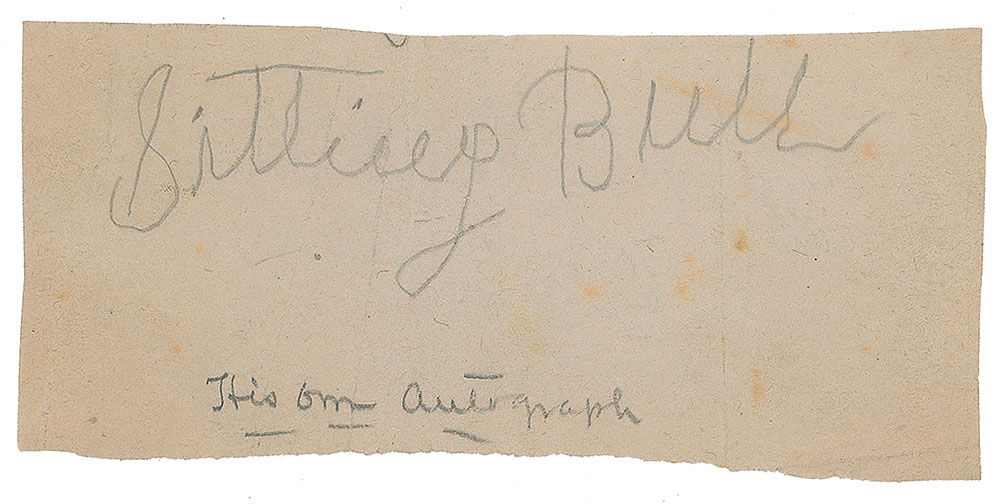 Sitting Bull
His own Autograph